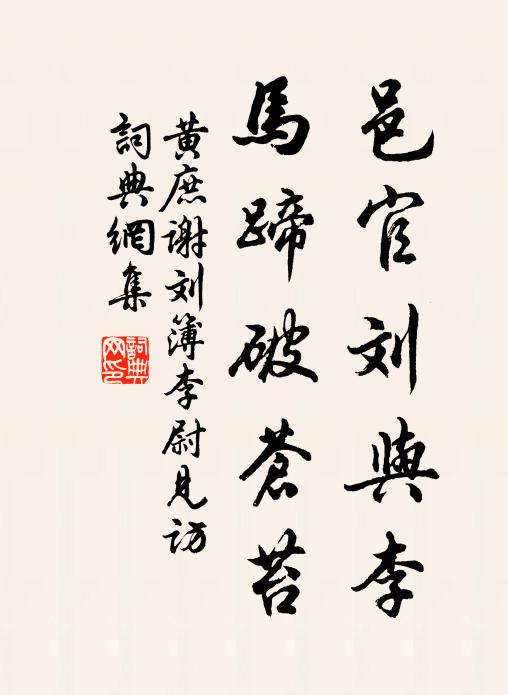 邑官刘與李
馬蹄破蒼苔
黄庶谢刘簿李尉見访
詞典網集
詞典网印